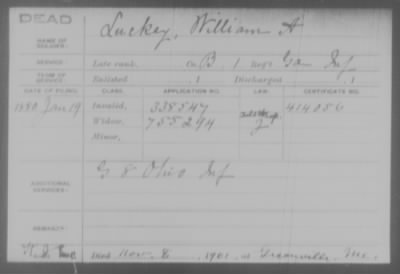 DEAD
NAME OF SOLDIER: Luckey, William A
SERVICE: Late rank, Co. B, 1 Reg't Ga Inf
TERM OF SERVICE: Enlisted , 1 Discharged , 1
DATE OF FILING. CLASS. APPLICATION NO. LAW. CERTIFICATE NO.
1880 Jan 19 Invalid, 338547 414056
Widow, 755294
Minor,
ADDITIONAL SERVICES: G 8 Ohio Inf
REMARKS:
Died Nov. 8, 1901, at